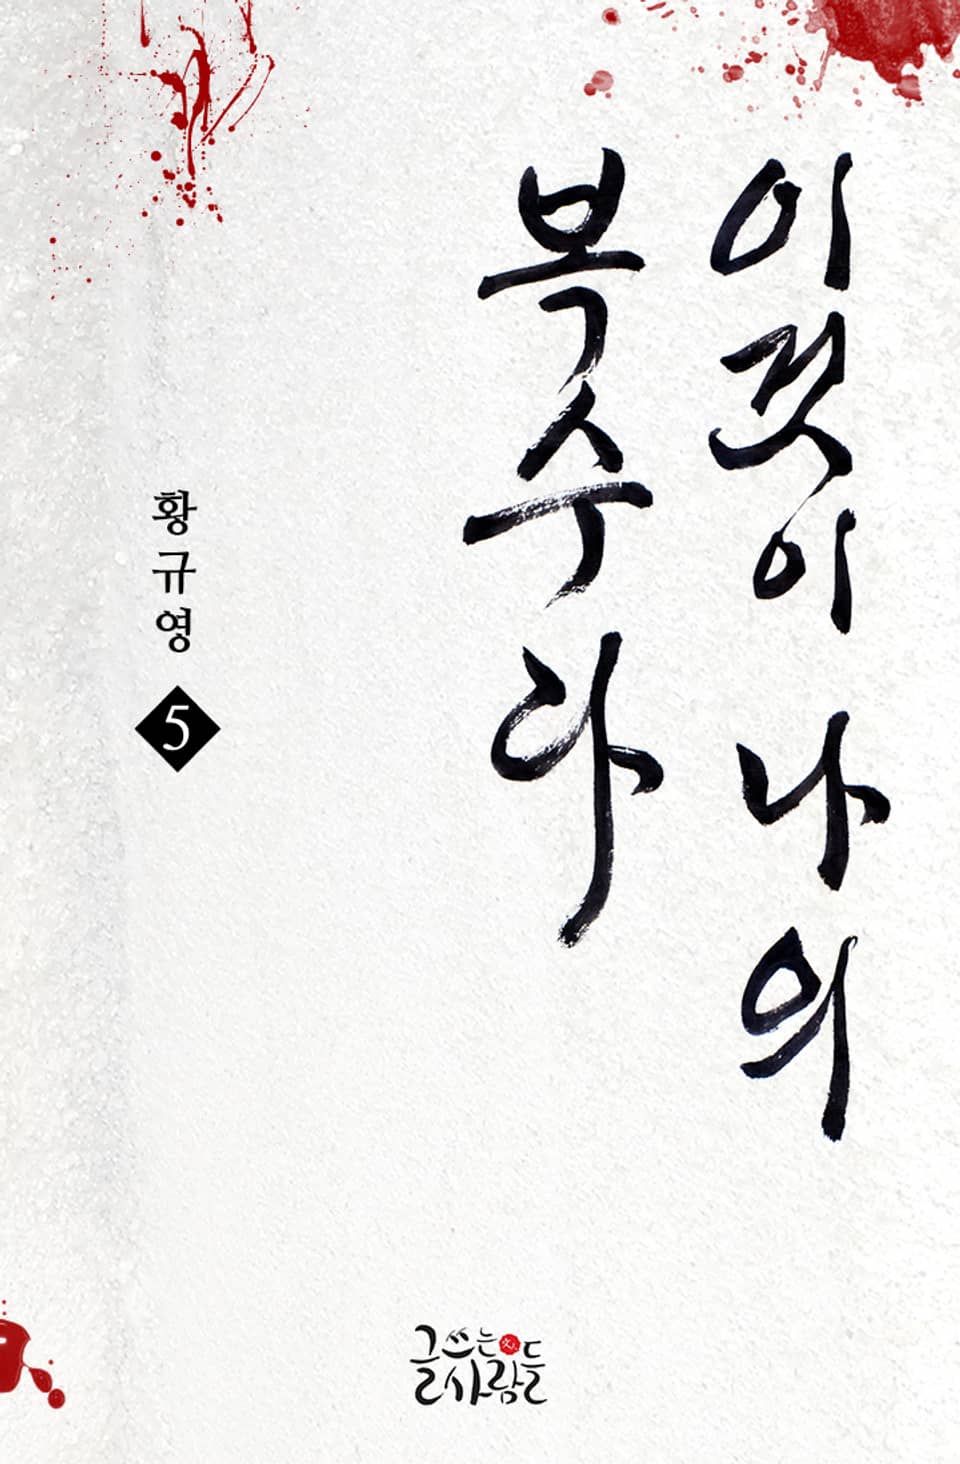 이것이 나의
복수다
황규영
5
글쓰는
사람들